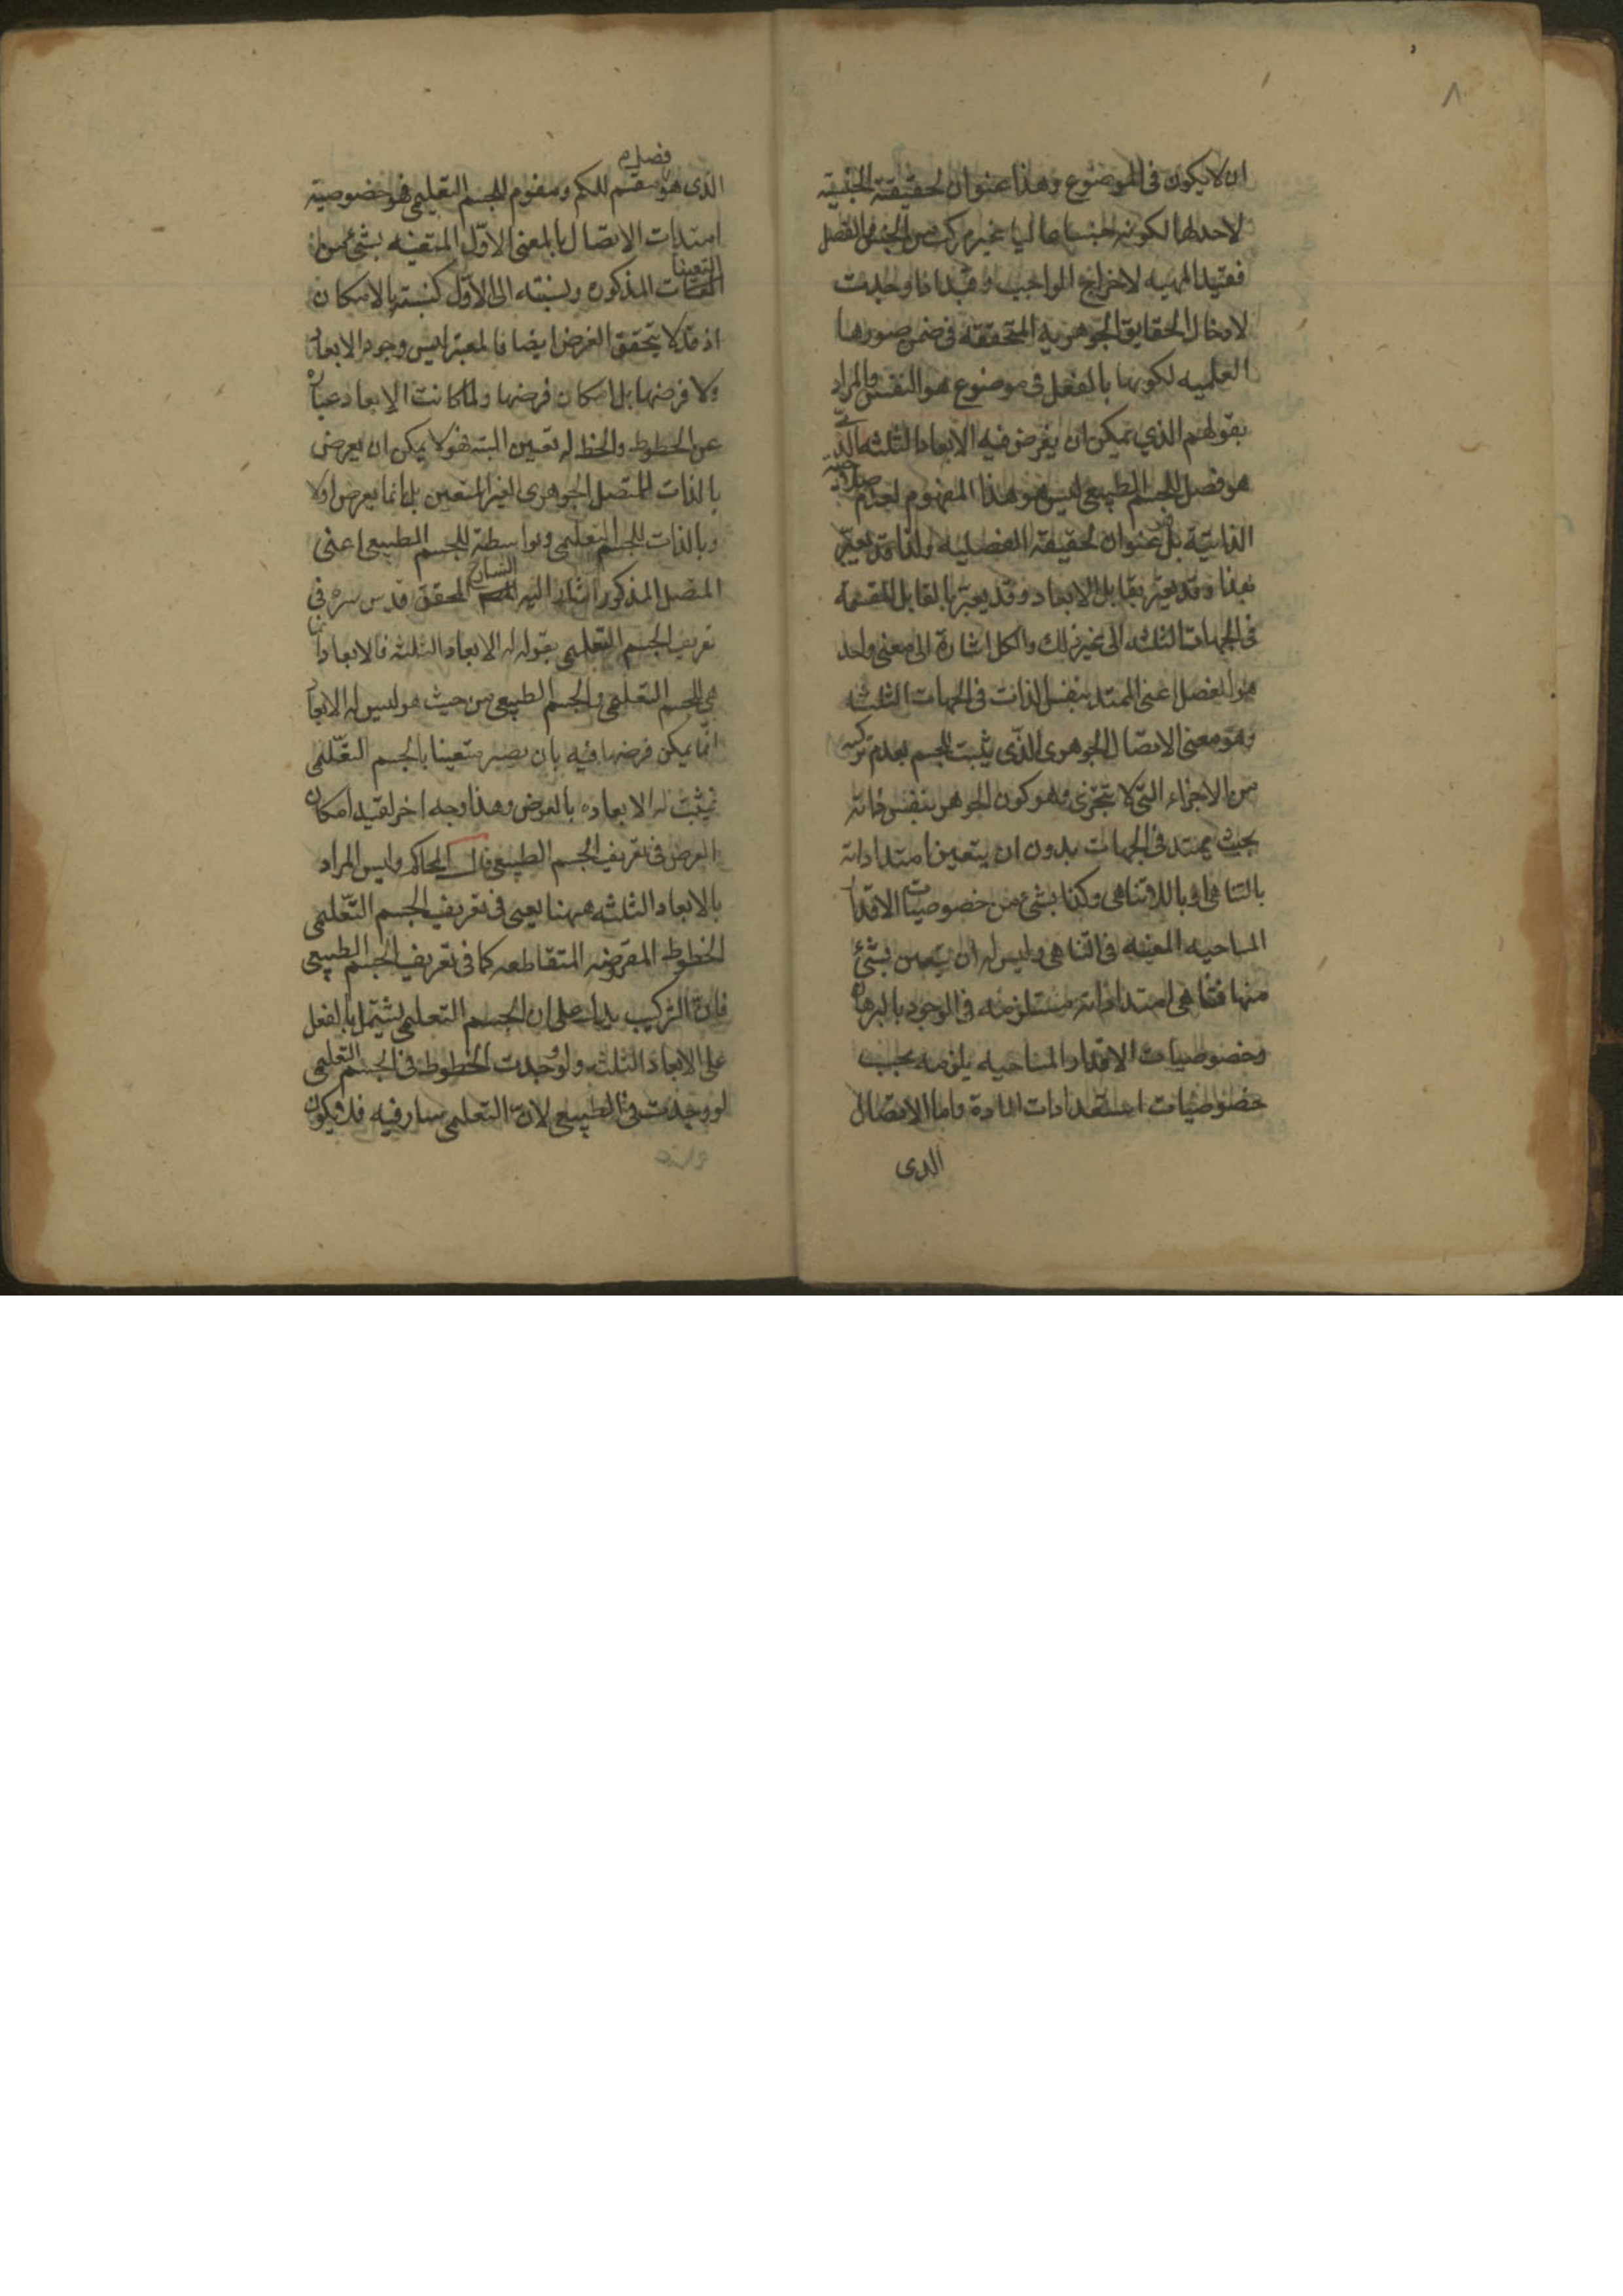 ٨
ان لا يكون فى الموضوع وهذا عنوان لحقيقة الجنسية
لاحد لها لكونه جنسا عاليا غير مركب من الجنس والفصل
فقيد المهية لاخراج الواجب وقيد اذا وجدت
لادخال الحقايق الجوهرية المتحققة فى ضمن صورها
العلميه لكونها بالفعل فى موضوع هو النفس والمراد
بقولهم الذي يمكن ان يفرض فيه الابعاد الثلثه الذى
هو فصل للجسم الطبيعى ليس هو هذا المفهوم لعدم
الذاتية بل عنوان لحقيقة الفصليه ولذا قد يعبر
بهذا وقد يعبر بقابل الابعاد وقد يعبر بالقابل للقسمة
فى الجهات الثلثه الى غير ذلك والكل اشارة الى معنى واحد
هو الفصل اعنى الممتد بنفس الذات فى الجهات الثلث
وهو معنى الاتصال الجوهرى الذى يثبت للجسم بعدم تركبه
من الاجزاء التى لا تتجزى وهو كون الجوهر بنفس ذاته
بحيث يمتد فى الجهات بدون ان يتعين امتداداته
بالتناهى او باللاتناهى وكذا بشئ من خصوصيات الاقدا
المساحيه المعينه فى التناهى وليس له ان يتعين بشئ
منها فتناهى امتداداته مستلزمه فى الوجود بالبرهان
وخصوصيات الاقدار المساحيه يلزمه بحسب
خصوصيات استعدادات المادة واما الاتصال
الذى
فصل م
الذى هو مقسم للكم ومقوم للجسم التعليمى فهو خصوصية
امتدادت الاتصال بالمعنى الاول المتعينه بشئ من
التعينا
المذكوره ونسبته الى الاول كنسبة بالامكان
اذ قد لا يتحقق الفرض ايضا فالمعتبر ليس وجود الابعاد
ولا فرضها بل امكان فرضها ولما كانت الابعاد عبارة
عن الخطوط والخط له تعين البته فهو لا يمكن ان يعرض
بالذات للمتصل الجوهرى الغير المتعين بل انما يعرض اولا
وبالذات للجسم التعليمى وبواسطة للجسم الطبيعى اعنى
المتصل المذكور اشار اليه الشارح المحقق قدس سره فى
تعريف الجسم التعليمى بقوله له الابعاد الثلثه فالابعاد انما
هى للجسم التعليمى والجسم الطبيعى من حيث هو ليس له الابعاد
انما يمكن فرضها فيه بان يصير متعينا بالجسم التعليمى
فيثبت له الابعاده بالعرض وهذا وجه اخر لقيد امكان
الفرض فى تعريف الجسم الطبيعى قال المحاكم وليس المراد
بالابعاد الثلثه ههنا يعنى فى تعريف الجسم التعليمى
الخطوط المفروضه المتقاطعه كما فى تعريف الجسم الطبيعى
فان التركيب يدل على ان الجسم التعليمى يشتمل بالفعل
على الابعاد الثلثه ولو وجدت الخطوط فى الجسم التعليمى
لو وجدت فى الطبيعى لان التعليمى سار فيه فلا يكون